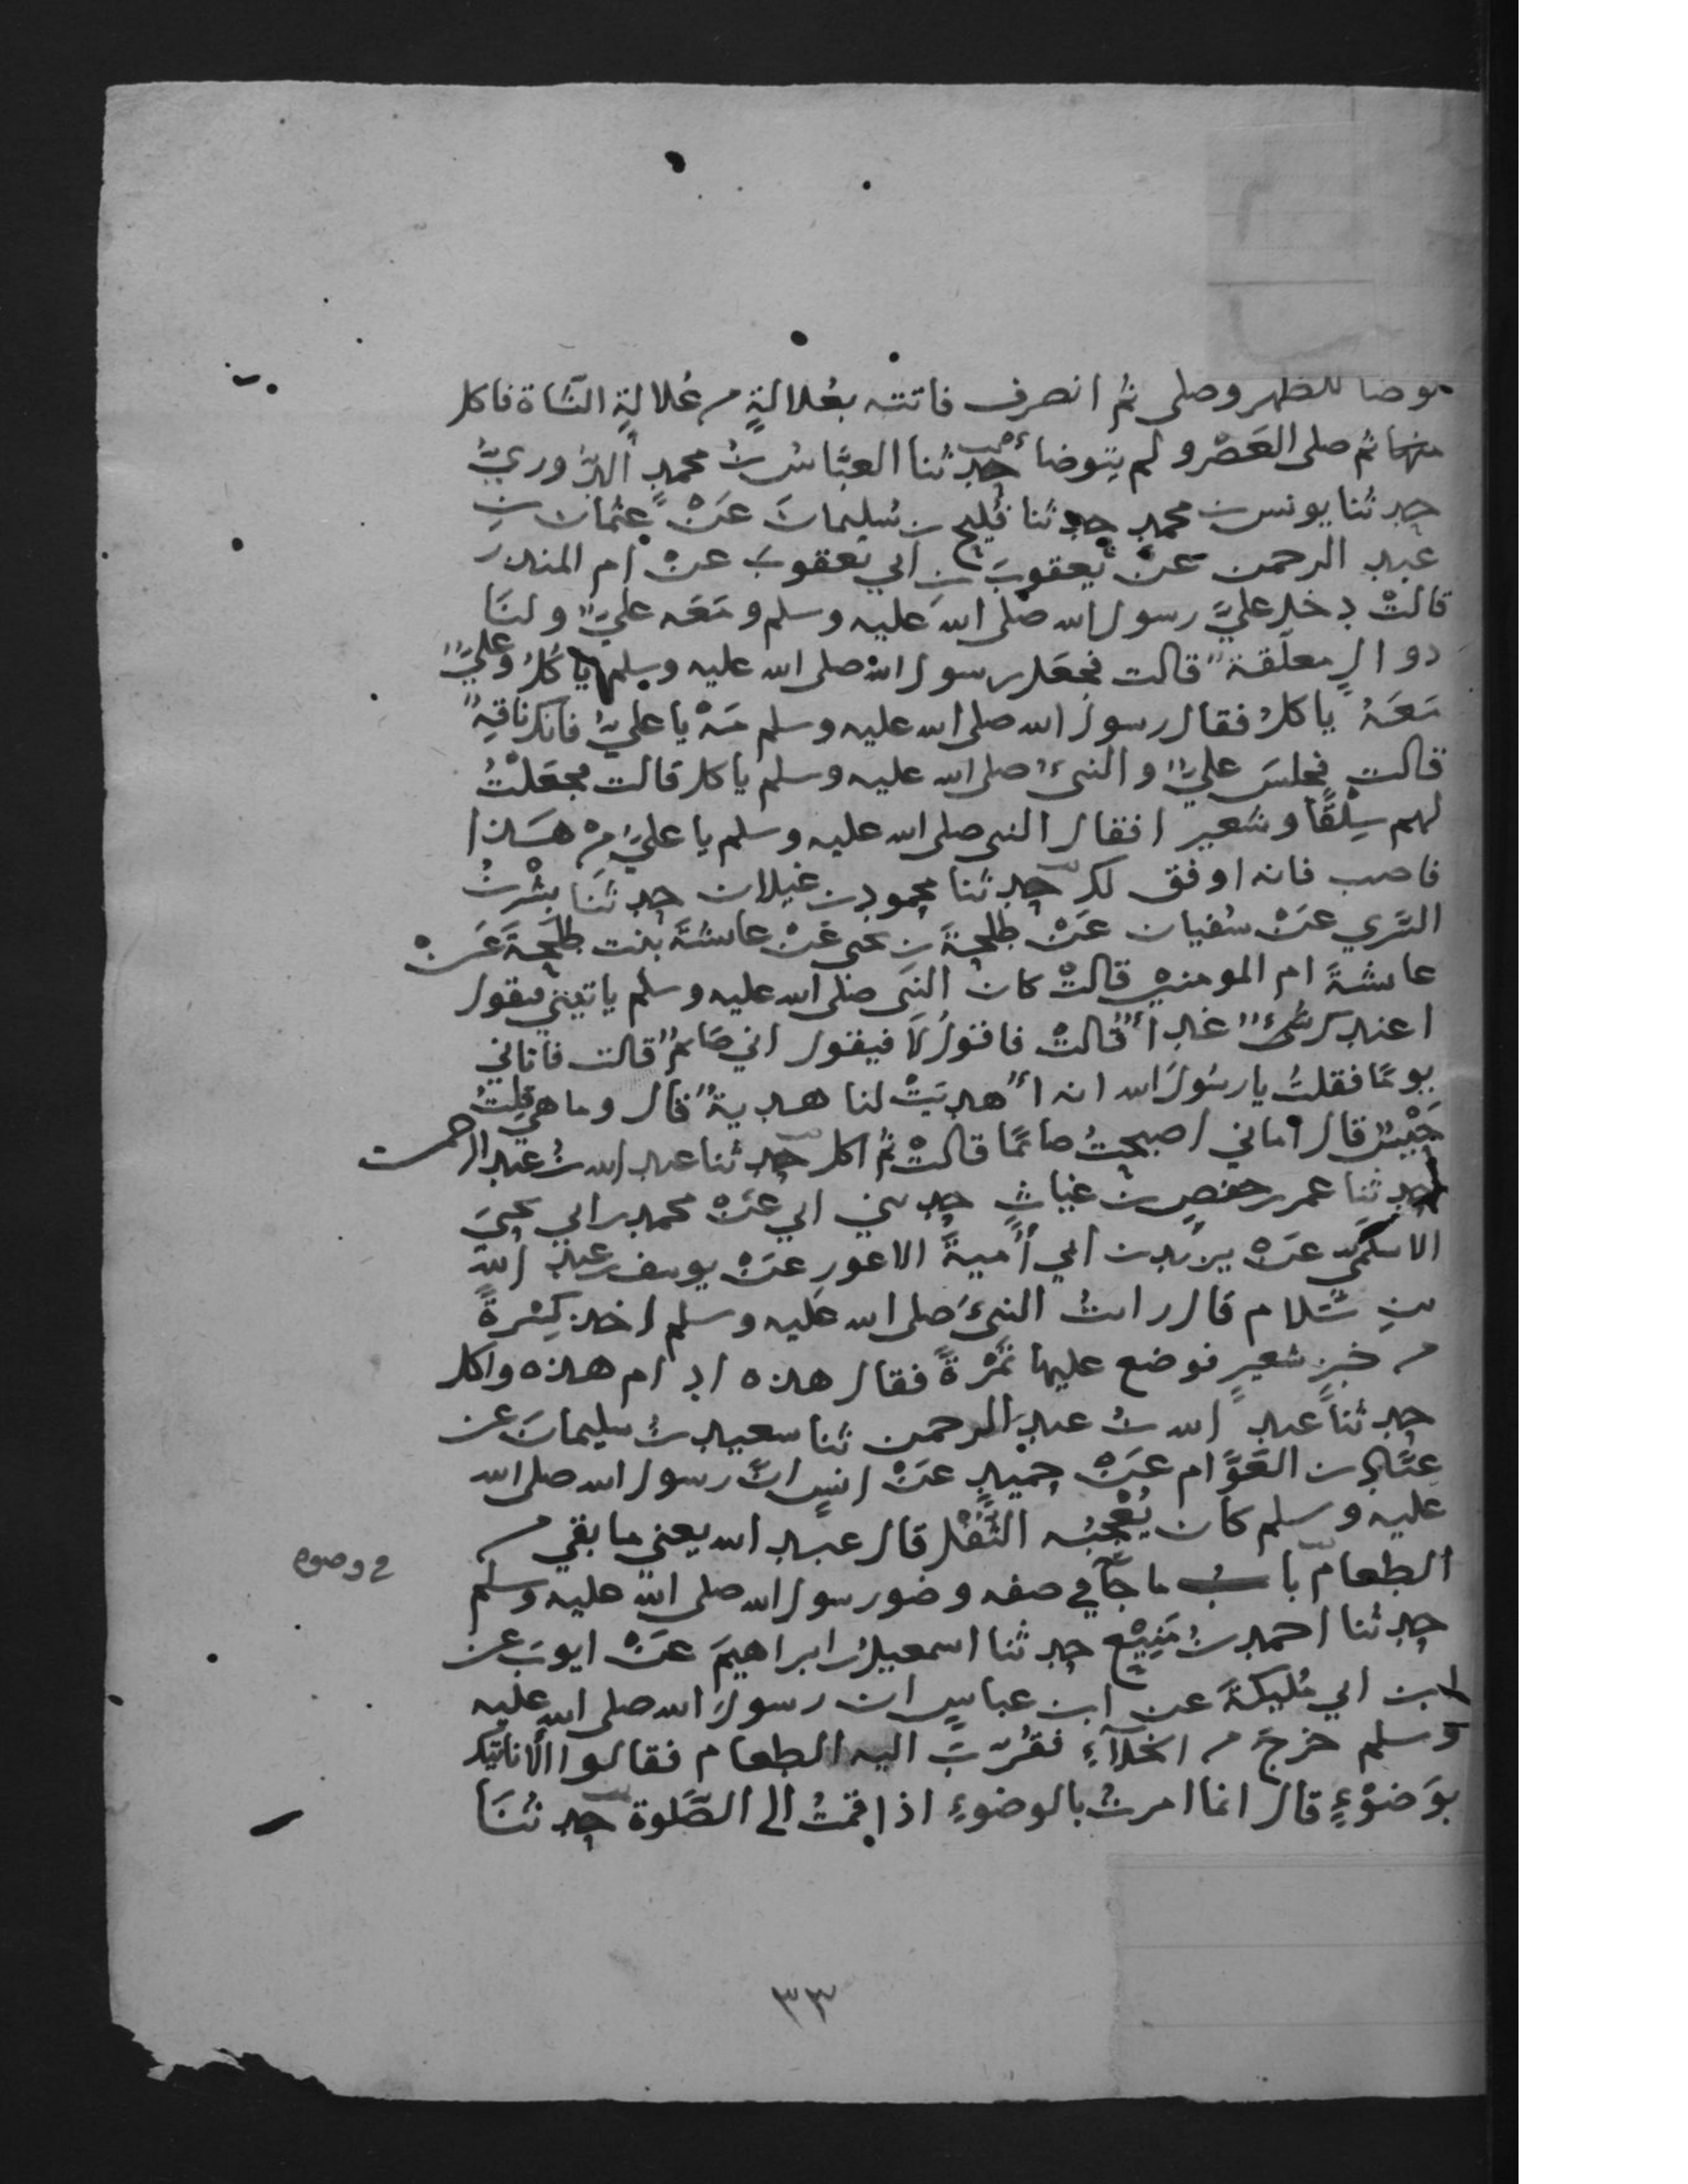 توضا للظهر وصلى ثم انصرف فاتته بعُلالةٍ من عُلالةِ الشاة فاكل
منها ثم صلى العَصْر ولم يتوضا حدثنا العبَّاسُ بنُ محمدٍ الدُّوريُّ
حدثنا يونس بن محمدٍ حدثنا فُليح بن سُليمانَ عَنْ عثمان بنِ
عبد الرحمن عَنْ يعقوبَ بنِ ابي يعقوبَ عنْ ام المنذر
قالتْ دخل عليَّ رسول الله صلى الله عليه وسلم ومَعَه عليٌّ ولنَا
دوالٍ معلّقة قالت فجعَل رسول الله صلى الله عليه وسلم ياكلُ وعليٌّ
مَعَهُ ياكلُ فقال رسول الله صلى الله عليه وسلم مَهْ يا عليُّ فانك ناقِهٌ
قالت فجلسَ عليٌّ والنبيُ صلى الله عليه وسلم ياكل قالت فجعَلْتُ
لهم سِلْقًا وشعيرا فقال النبي صلى الله عليه وسلم يا عليُّ منْ هَذا
فاصب فانه اوفق لك حدثنا محمود بن غيلان حدثنَا بِشْر بنُ
السَّري عَنْ سُفيان عَنْ طلحةَ بن يحيى عَنْ عائشةَ بنت طلحَةَ عَنْ
عائشةَ ام المومنين قالتْ كان النبي صلى الله عليه وسلم ياتيني فيقول
اعندك شىءٌ غداءٌ قالتْ فاقولُ لَا فيقول اني صَائمٌ قالت فاتاني
يومًا فقلتُ يا رسُولَ الله انه أُهديَتْ لنا هديةٌ قال وما هي قلتُ
حَيْسٌ قال اما اني اصبحتُ صائمًا قالتْ ثم اكل حدثنا عبد الله بنُ عبد الرحمن
حدثنا عمر بن حفصِ بن غياثٍ حدثني ابي عَنْ محمد بن ابي يحيىَ
الاسلمي عَنْ يزيد بن ابي أُميةَ الاعور عَنْ يوسف بن عبد اللهِ
بنِ سَلام قال رايتُ النبيَ صلى الله عليه وسلم اخذ كِسْرةً
من خبزِ شعيرٍ فوضع عليها تَمْرةً فقال هذه ادام هذه واكل
حدثنا عبد الله بنُ عبد الرحمن ثنا سعيد بنُ سليمانَ عن
عبَّاد بن العَوَّام عَنْ حميدٍ عَنْ انسٍ انَّ رسول الله صلى الله
عليه وسلم كان يُعْجِبُه الثُّفْل قال عبد الله يعني ما بقي من
الطعام بابُ ما جآ في صفه وضو رسول الله صلى الله عليه وسلم
حدثنا احمد بنُ مَنِيْعٍ حدثنا اسمعيل بن ابراهيمَ عَنْ ايوبَ عن
ابن ابي مُليكةَ عن ابن عباسٍ ان رسولَ الله صلى الله عليه
وسلم خرجَ من الخلآءِ فقُرّبَ اليه الطعام فقالوا الا ناتيك
بوَضوْءٍ قال انما امرتُ بالوضوءِ اذا قمتُ الى الصَّلوة حدثنَا
وضوه
٣٣